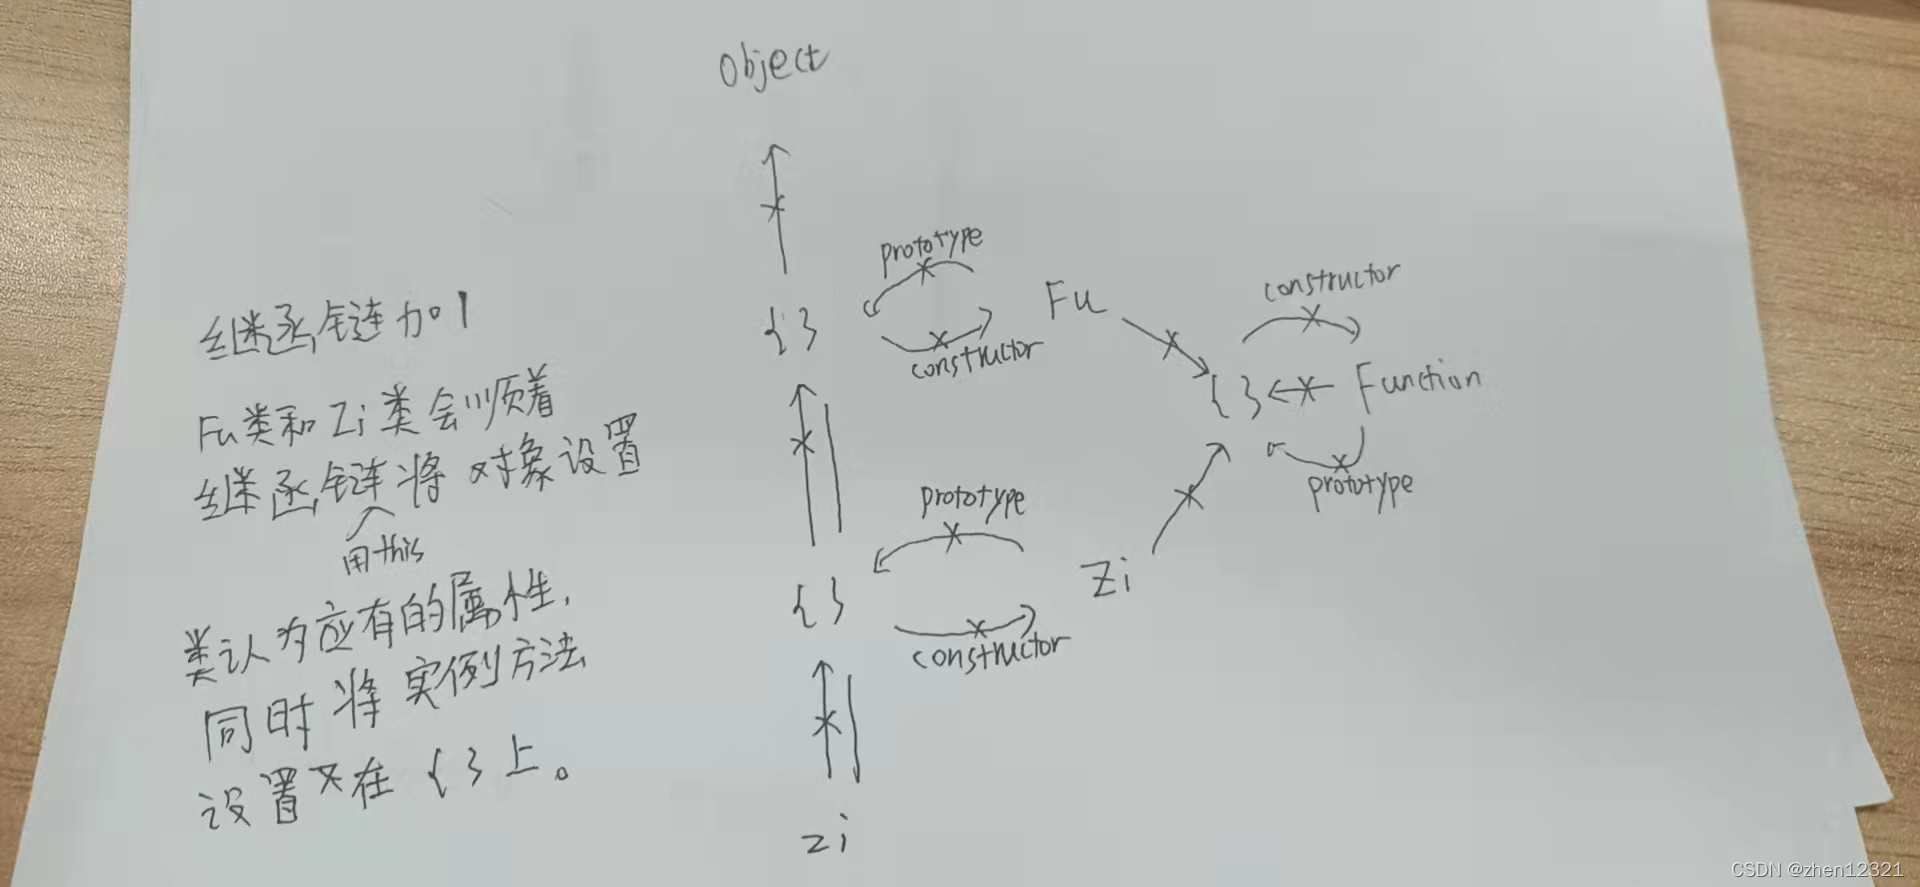 Object
prototype
Fu
constructor
constructor
继承链加1
{ }
constructor
{ }
Function
Fu类和Zi类会顺着
继承链将对象设置
用this
prototype
prototype
Zi
类认为应有的属性,
{ }
constructor
同时将实例方法
设置在{ }上。
zi
CSDN @zhen12321